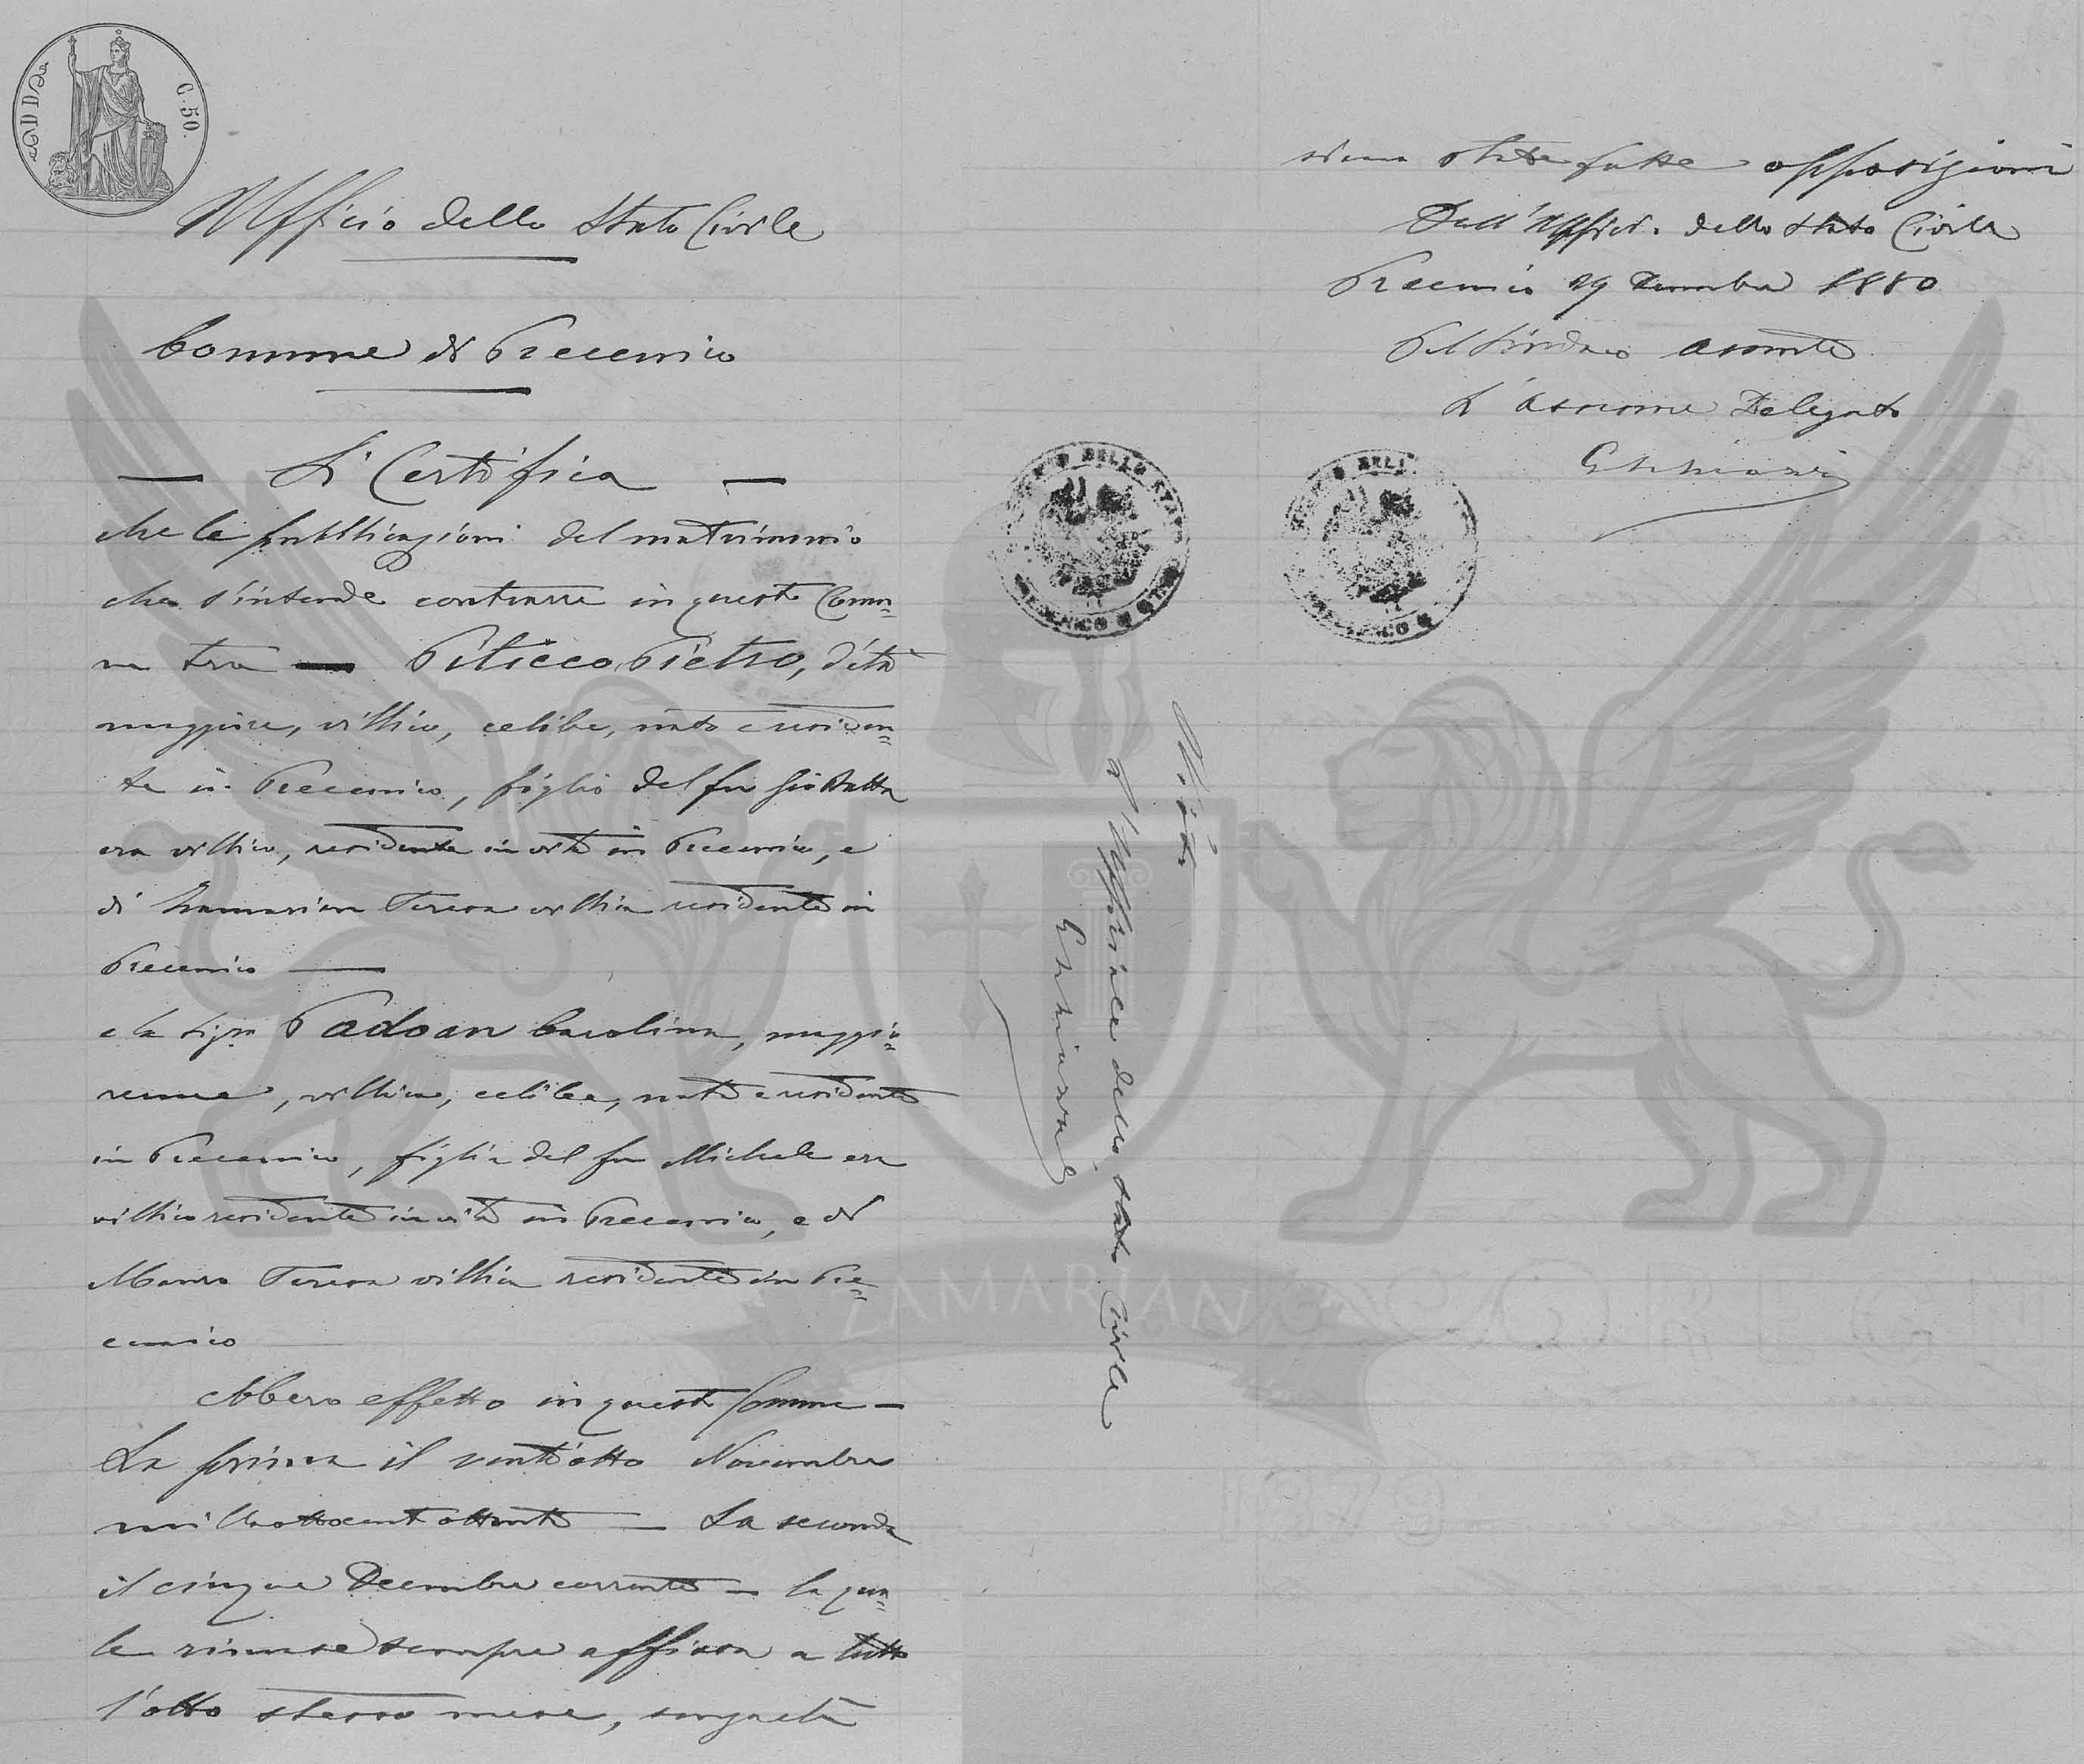 C. 50.
Ufficio dello Stato Civile
Comune di Precenico
— Si Certifica —
che le pubblicazioni del matrimonio
che s'intende contrarre in questo Comu=
ne tra — Piticco Pietro, d'età
maggiore, villico, celibe, nato e residen=
te in Precenico, figlio del fu Gio Batta
era villico, residente in vita in Precenico, e
di Teresa villica residente in
Precenico —
e la Sigra Padoan Carolina, maggio=
renne, villica, celibe, nata e residente
in Precenico, figlia del fu Michele era
villico residente in vita in Precenico, e di
Mauro Teresa villica residente in Pre=
cenico
Ebbero effetto in questo Comune —
La prima il ventiotto Novembre
milleottocentottanta — La seconda
il cinque Decembre corrente — la qua=
le rimase sempre affissa a tutto
l'otto stesso mese, senza che
siano state fatte opposizioni
Dall'Uffici. dello Stato Civile
Precenico 29 Decembre 1880
Pel Sindaco assente
L'Assessore Delegato
Visto
L'Ufficiale dello Stato Civile
ZAMARIAN
1379